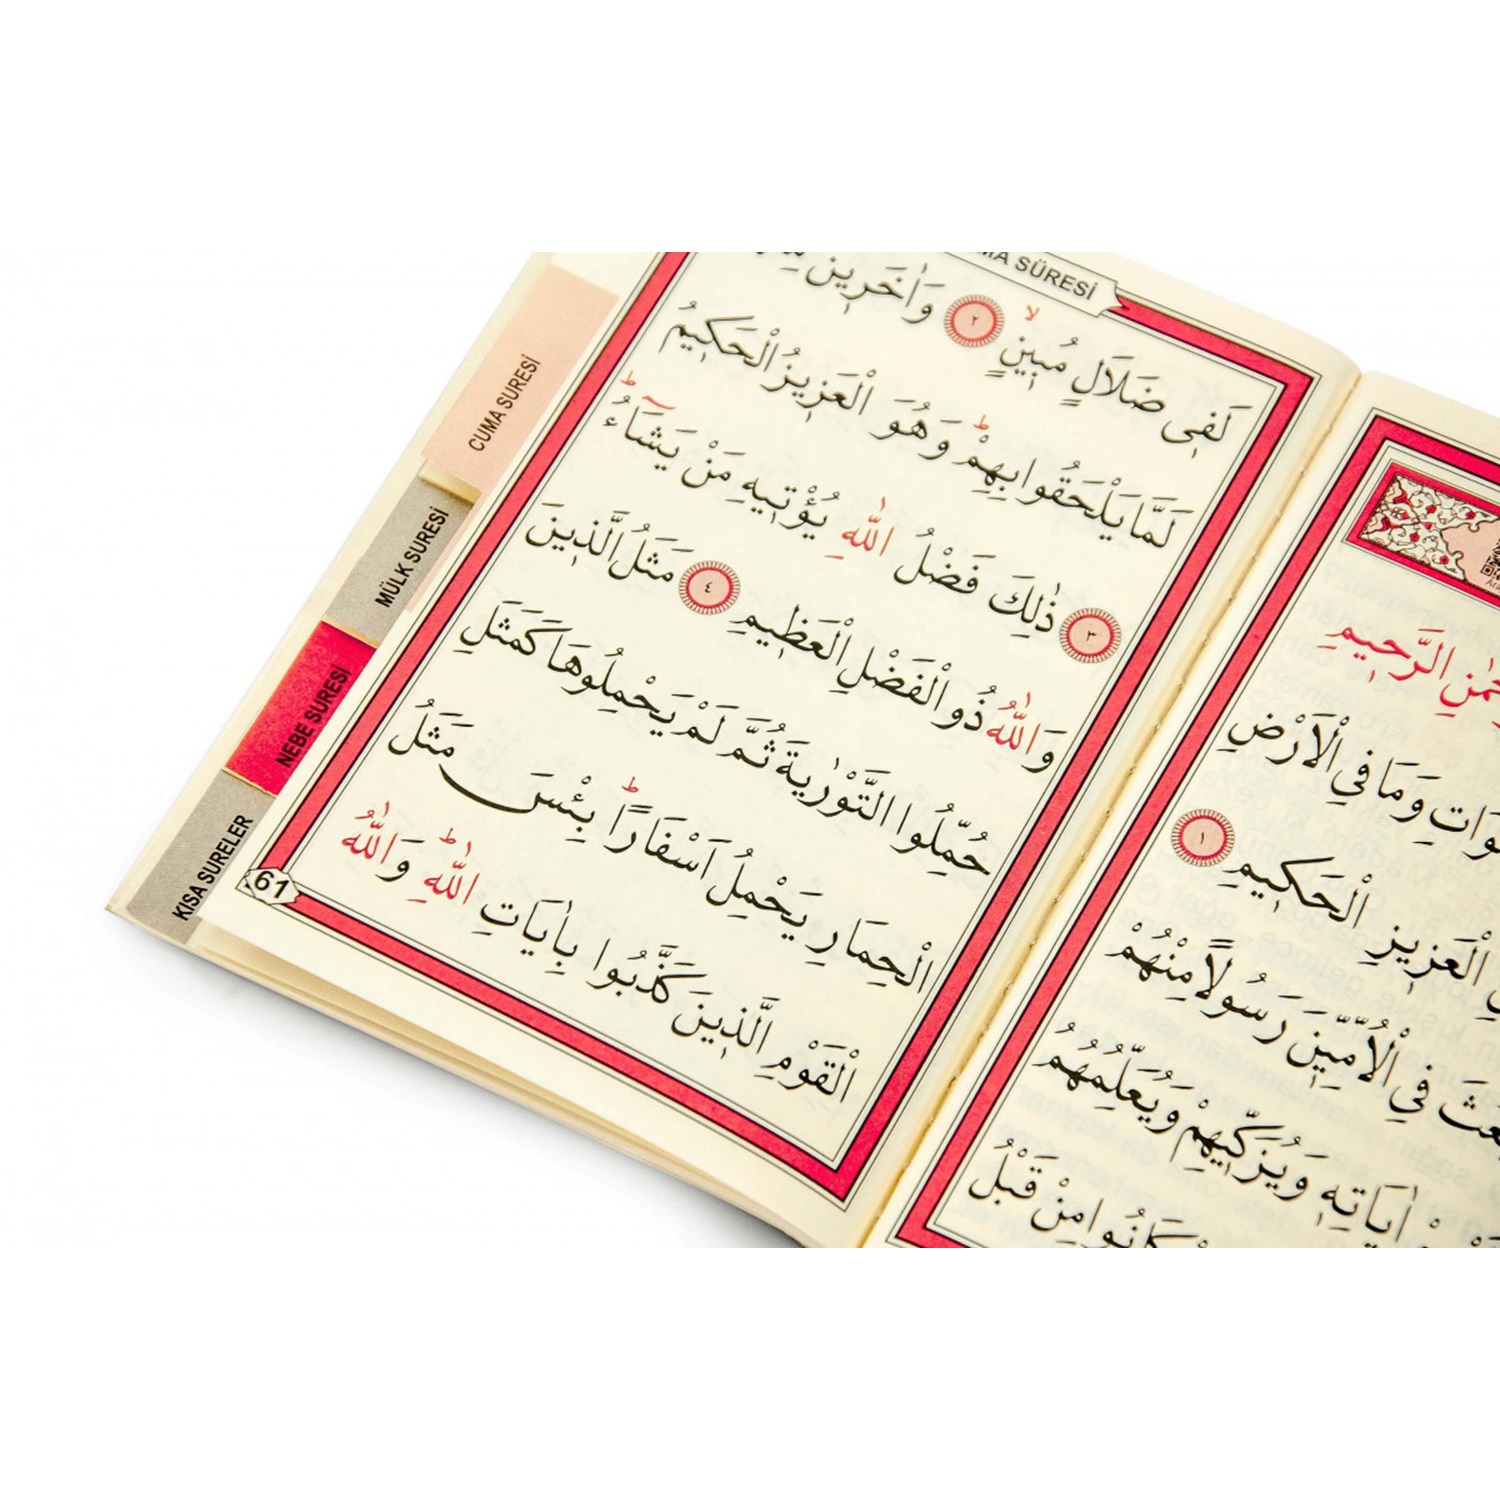 SÜRESİ
لَف۪ي ضَلَالٍ مُب۪ينٍۙ ٢ وَاٰخَر۪ينَ
لَمَّا يَلْحَقُوا بِهِمْۜ وَهُوَ الْعَز۪يزُ الْحَك۪يمُ
٣ ذٰلِكَ فَضْلُ اللّٰهِ يُؤْت۪يهِ مَنْ يَشَٓاءُۜ
وَاللّٰهُ ذُو الْفَضْلِ الْعَظ۪يمِ ٤ مَثَلُ الَّذ۪ينَ
حُمِّلُوا التَّوْرٰيةَ ثُمَّ لَمْ يَحْمِلُوهَا كَمَثَلِ
الْحِمَارِ يَحْمِلُ اَسْفَارًاۜ بِئْسَ مَثَلُ
الْقَوْمِ الَّذ۪ينَ كَذَّبُوا بِاٰيَاتِ اللّٰهِۜ وَاللّٰهُ
61
CUMA SURESİ
MÜLK SURESİ
NEBE SURESİ
KISA SURELER
الرَّح۪يمِ
وَمَا فِي الْاَرْضِ
الْعَز۪يزِ الْحَك۪يمِ ١
فِي الْاُمِّيّ۪نَ رَسُولًا مِنْهُمْ
اٰيَاتِه۪ وَيُزَكّ۪يهِمْ وَيُعَلِّمُهُمُ
كَانُوا مِنْ قَبْلُ